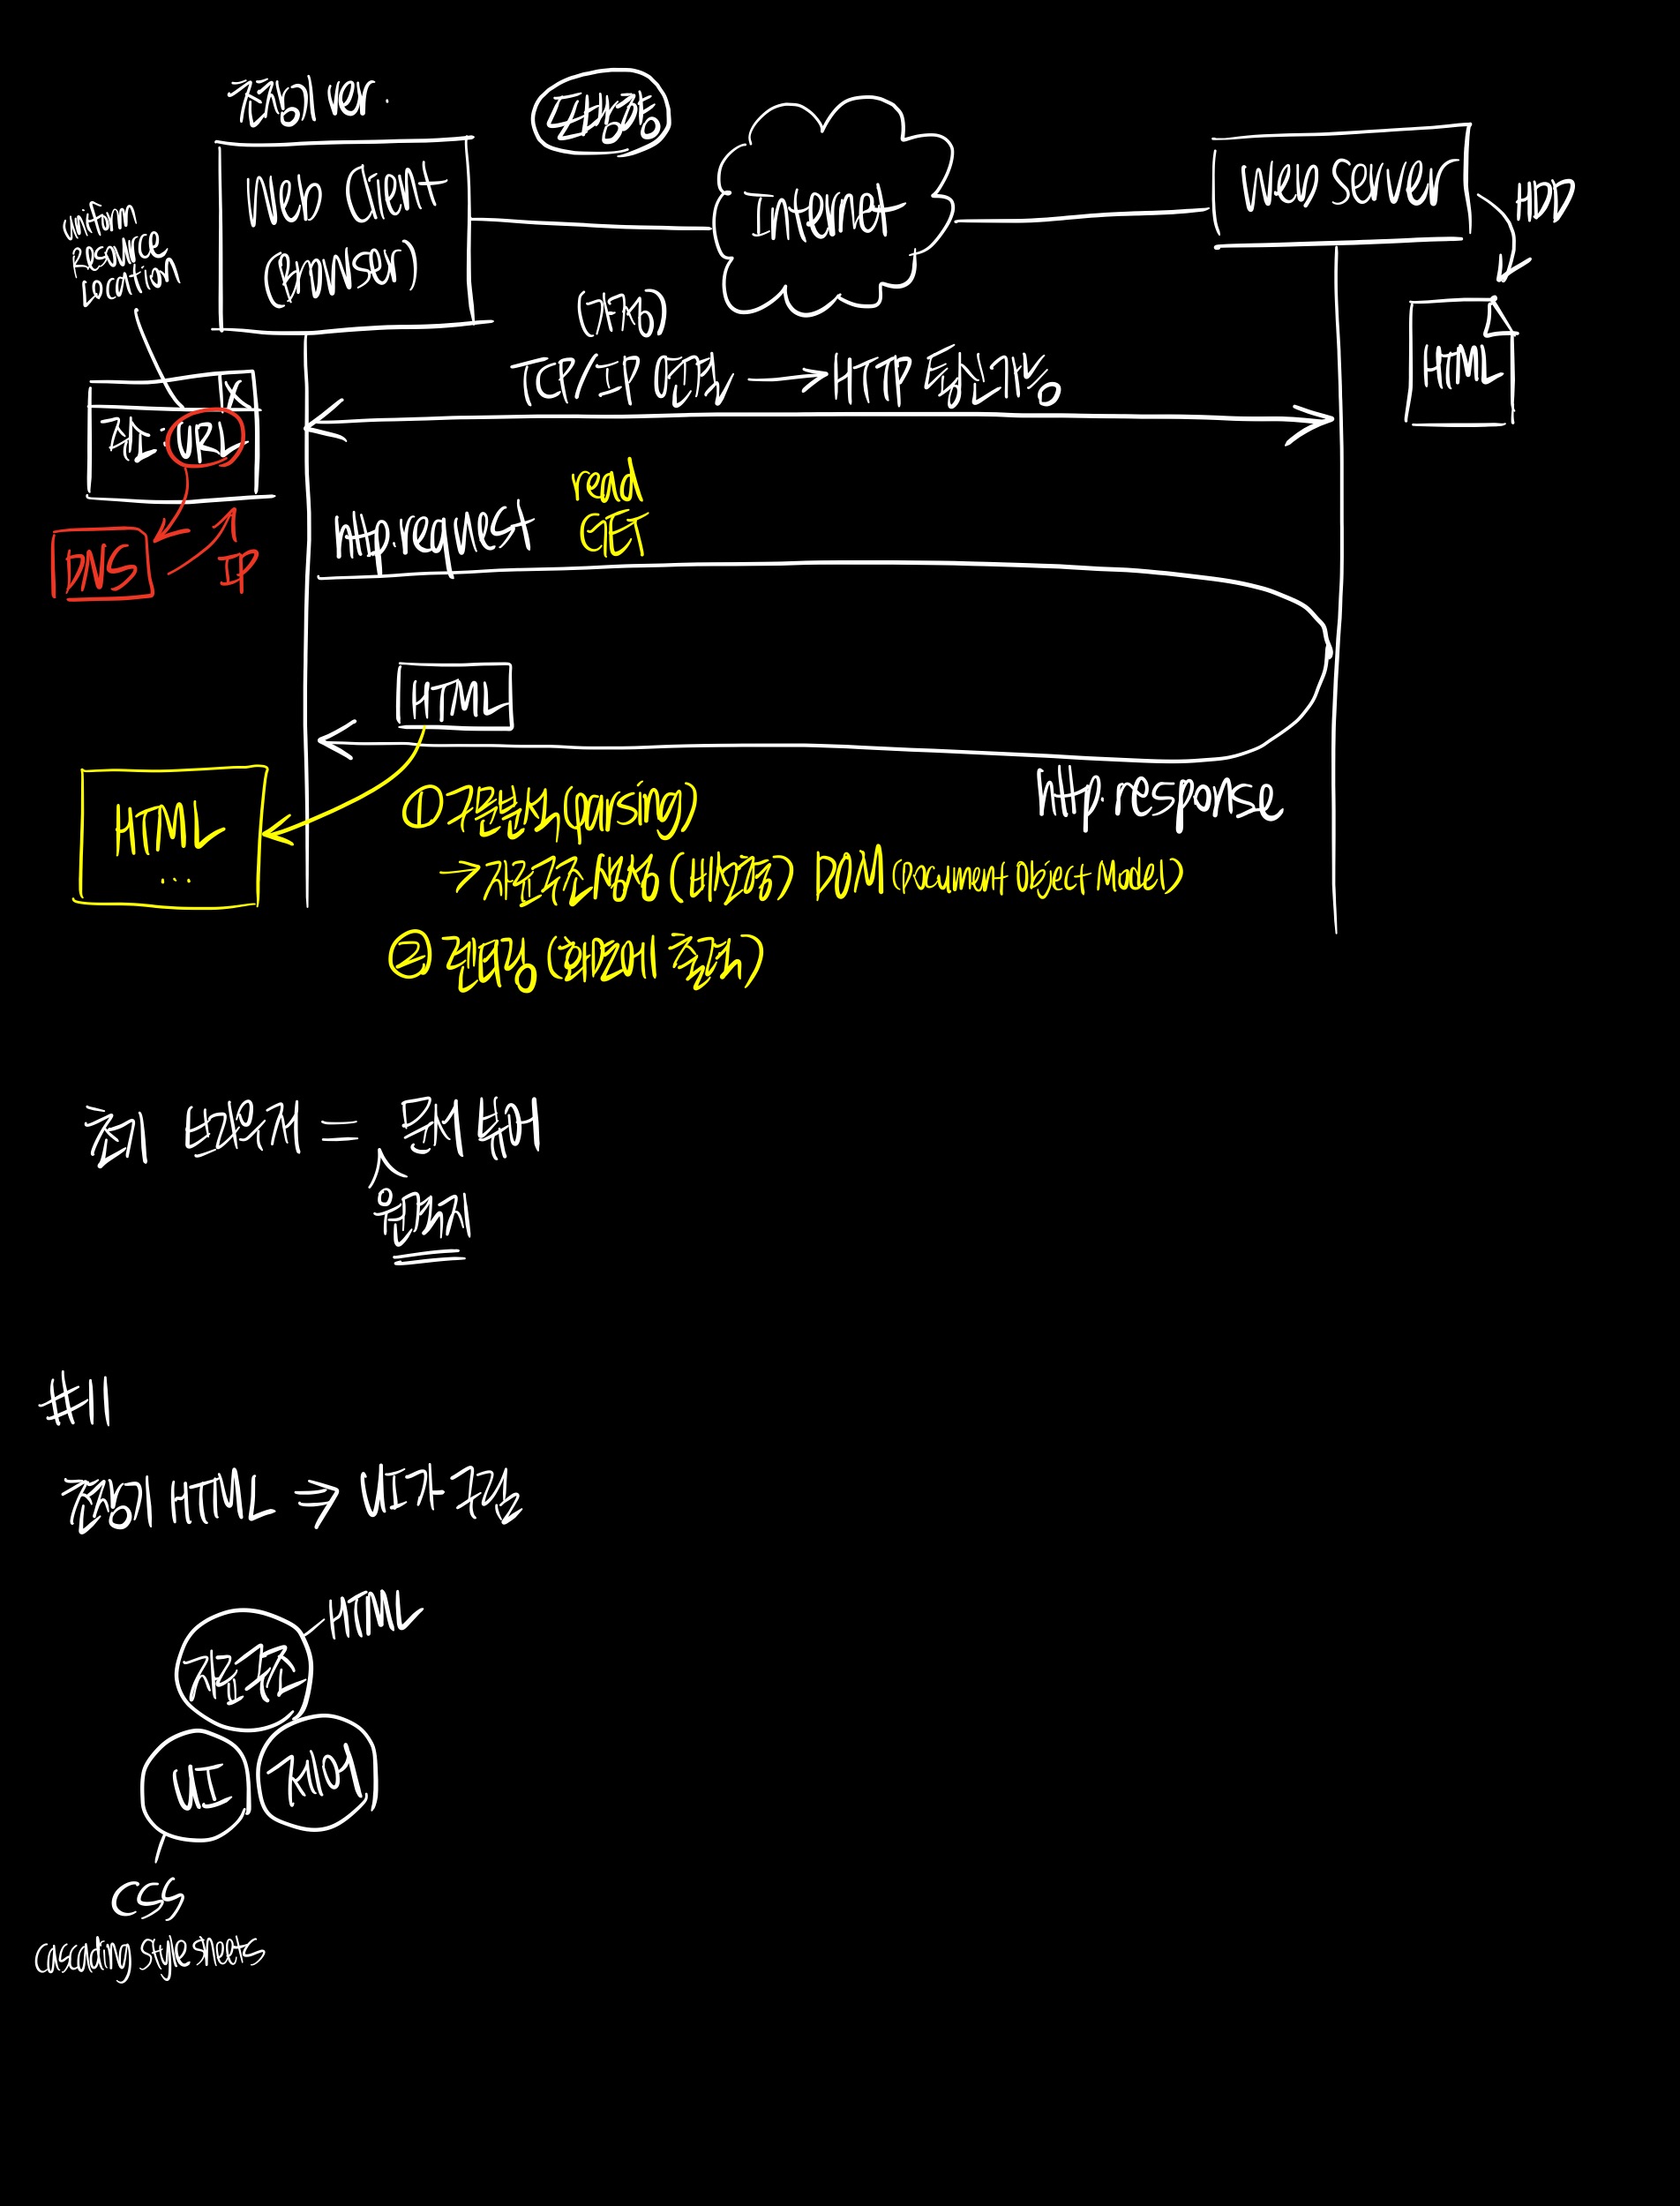 초창기 ver.
단방향
Web Client
(Browser)
Internet
Web Server
HDD
HTML
uniform
Resource
Location
X
주소: URL
DNS
IP
(가상)
TCP/IP 연결 → HTTP 통신가능
read
GET
http.request
HTML
http.response
HTML
...
① 구문분석 (parsing)
→ 자료구조 생성 (비선형) DOM (Document Object Model)
② 렌더링 (화면에 출력)
초기 브라우저 = 문서 뷰어
원격지
#11
초창기 HTML ⇒ UI가 구림
자료구조
HTML
UI
제어
CSS
cascading style sheets